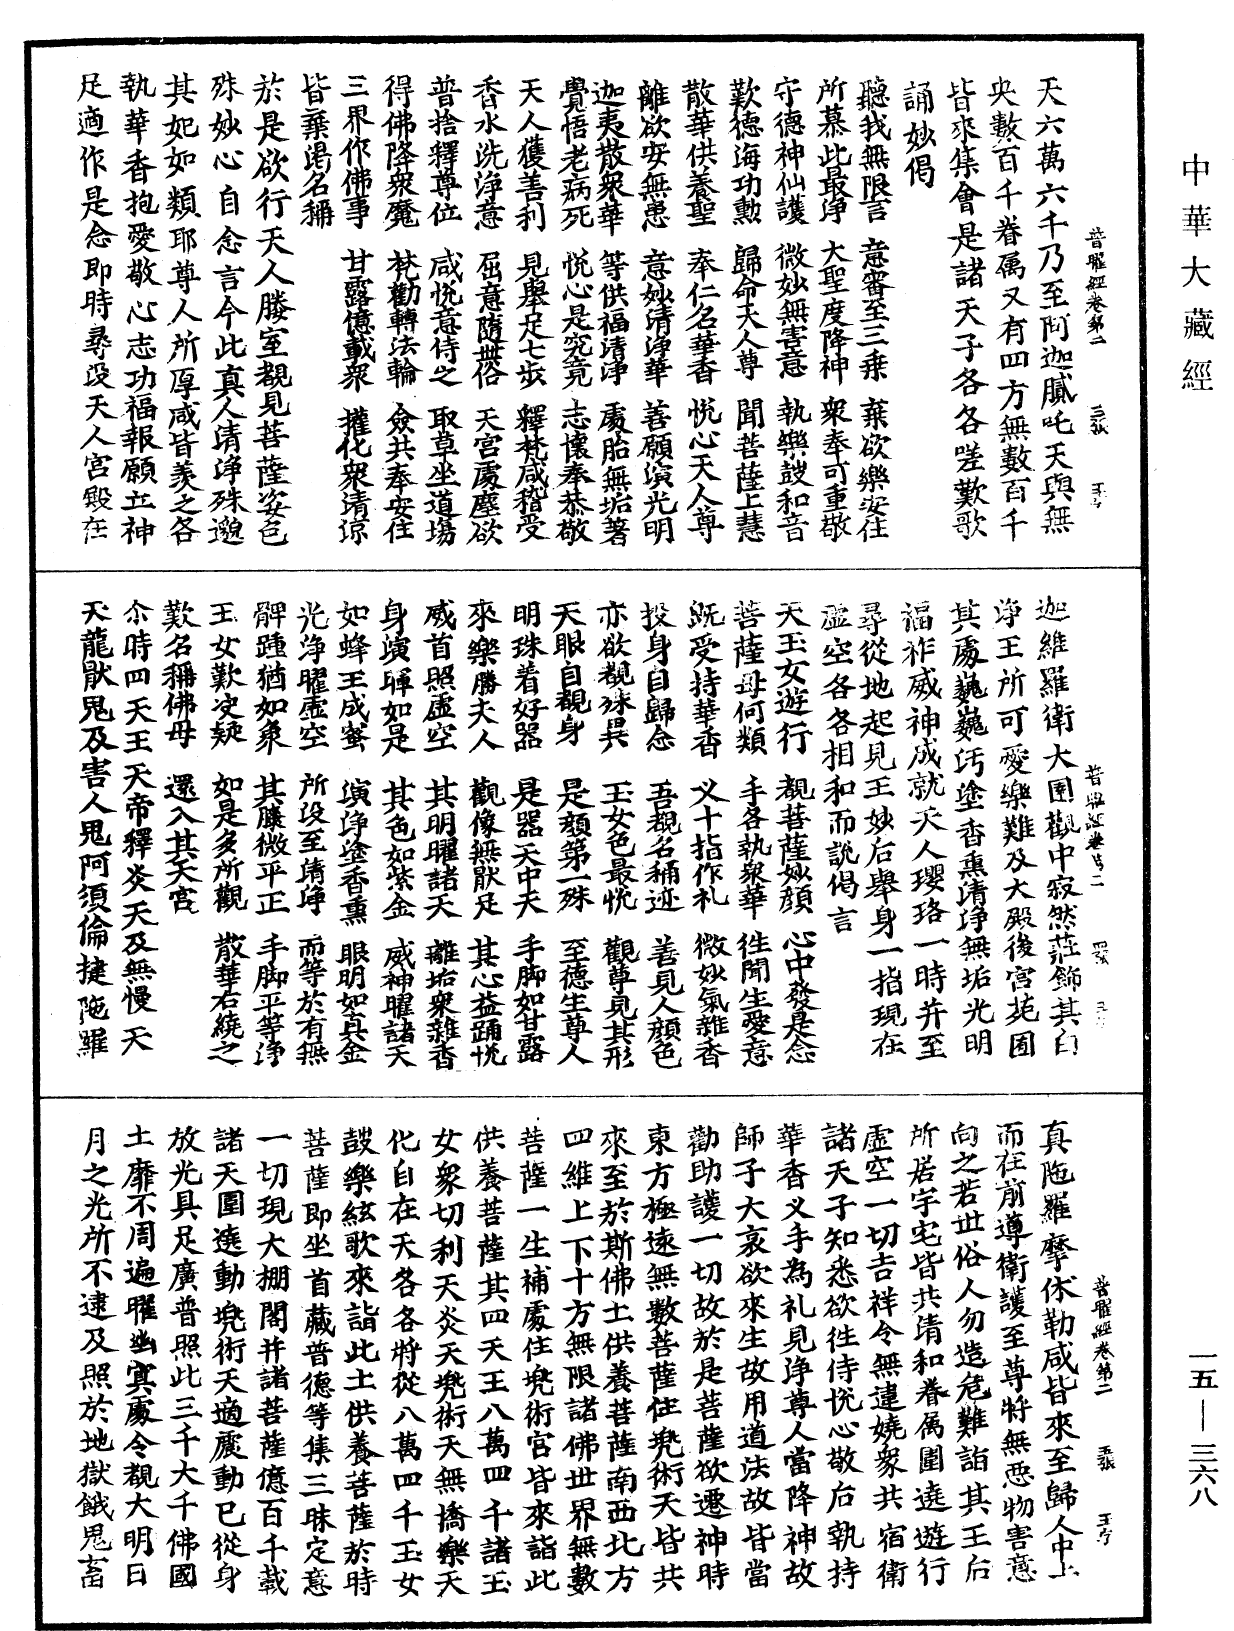 中華大藏經
普曜經卷第二
天六萬六千乃至阿迦膩吒天與無
央數百千眷属又有四方無數百千
皆來集會是諸天子各各嗟歎歌
誦妙偈
聽我無限言 意審至三乗 棄欲樂安住
所慕此最浄 大聖度降神 衆奉可重敬
守德神仙護 微妙無害意 執樂皷和音
歎德海功勲 歸命天人尊 聞菩薩上慧
散華供養聖 奉仁名華香 悦心天人尊
離欲安無患 意妙清浄華 善願演光明
迦夷散衆華 等供福清浄 處胎無垢著
覺悟老病死 悦心是究竟 志懷奉恭敬
天人獲善利 見舉足七步 釋梵咸稽受
香水洗浄意 屈意隨世俗 天宮處塵欲
普捨釋尊位 咸悦意侍之 取草坐道塲
得佛降衆魔 梵勸轉法輪 僉共奉安住
三界作佛事 甘露億載衆 權化衆清涼
皆棄湯名稱
於是欲行天人勝室覩見菩薩姿色
殊妙心自念言今此真人清浄殊邈
其妃如類耶尊人所厚咸皆羨之各
執華香抱愛敬心志功福報願立神
足適作是念即時尋没天人宮殿在
普曜經卷第二 四張
迦維羅衛大國觀中寂然莊飾其白
浄王所可愛樂難及大殿後宮苑囿
其處巍巍汚塗香熏清浄無垢光明
福祚威神成就天人瓔珞一時并至
尋從地起見王妙后舉身一指現在
虚空各各相和而說偈言
天玉女遊行 覩菩薩妙顔 心中發是念
菩薩母何類 手各執衆華 徃聞生愛意
既受持華香 叉十指作礼 微妙氣雜香
投身自歸念 吾覩名稱迹 善見人顔色
亦欲覩殊異 玉女色最悦 觀尊見其形
天眼自覩身 是顔第一殊 至德生尊人
明珠着好器 是器天中天 手脚如甘露
來樂勝夫人 觀像無猒足 其心益踊悦
威首照虚空 其明曜諸天 離垢衆雜香
身演暉如是 其色如紫金 威神曜諸天
如蜂王成蜜 演浄塗香熏 眼明如真金
光浄曜虚空 所没至清浄 而等於有無
髀踵猶如象 其膝微平正 手脚平等浄
玉女歎決疑 如是多所觀 散華右繞之
歎名稱佛母 還入其天宮
尒時四天王天帝釋炎天及無慢天
天龍猒鬼及害人鬼阿須倫揵陁羅
普曜經卷第二 五張
真陁羅摩休勒咸皆來至歸人中上
而在前導衛護至尊將無惡物害意
向之若世俗人勿造危難詣其王后
所居宇宅皆共清和眷属圍遶遊行
虚空一切吉祥令無違嬈衆共宿衛
諸天子知悉欲徃侍悦心敬后執持
華香叉手為礼見浄尊人當降神故
師子大哀欲來生故用道法故皆當
勸助護一切故於是菩薩欲遷神時
東方極遠無數菩薩住兠術天皆共
來至於斯佛土供養菩薩南西北方
四維上下十方無限諸佛世界無數
菩薩一生補處住兠術宮皆來詣此
供養菩薩其四天王八萬四千諸玉
女衆切利天炎天兠術天無憍樂天
化自在天各各將從八萬四千玉女
鼓樂絃歌來詣此土供養菩薩於時
菩薩即坐首藏普德等集三昧定意
一切現大棚閣并諸菩薩億百千載
諸天圍遶動兠術天適處動已從身
放光具足廣普照此三千大千佛國
土靡不周遍曜幽冥處令覩大明日
月之光所不逮及照於地獄餓鬼畜
一五—三六八